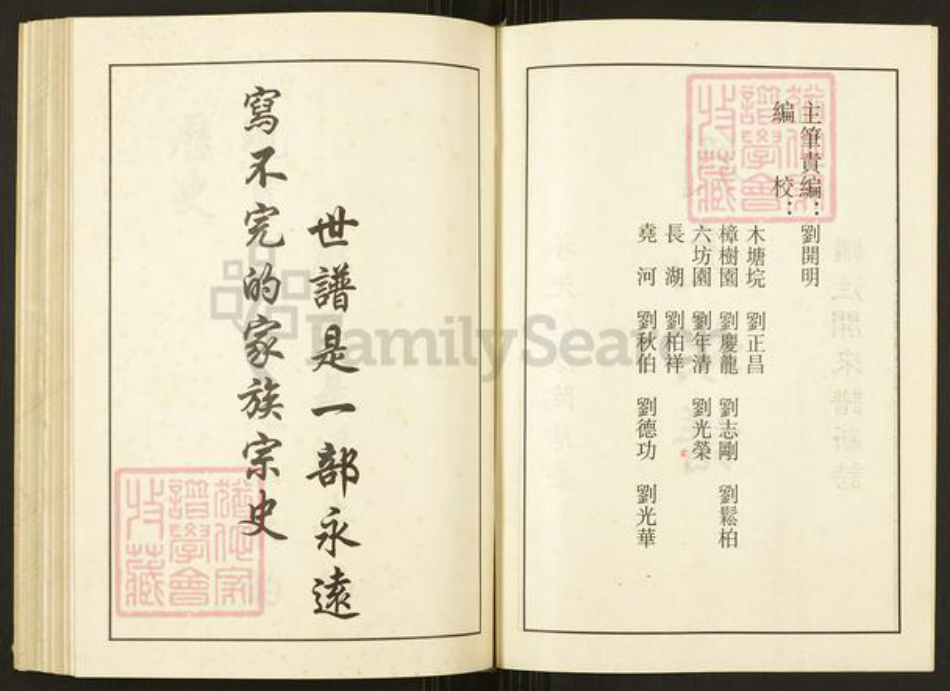 主筆責編：劉開明
編　校：
木塘垸　劉正昌
樟樹園　劉慶龍　劉志剛　劉鬆柏
六坊園　劉年清　劉光榮
長　湖　劉柏祥
堯　河　劉秋伯　劉德功　劉光華
世譜是一部永遠
寫不完的家族宗史
FamilySearch